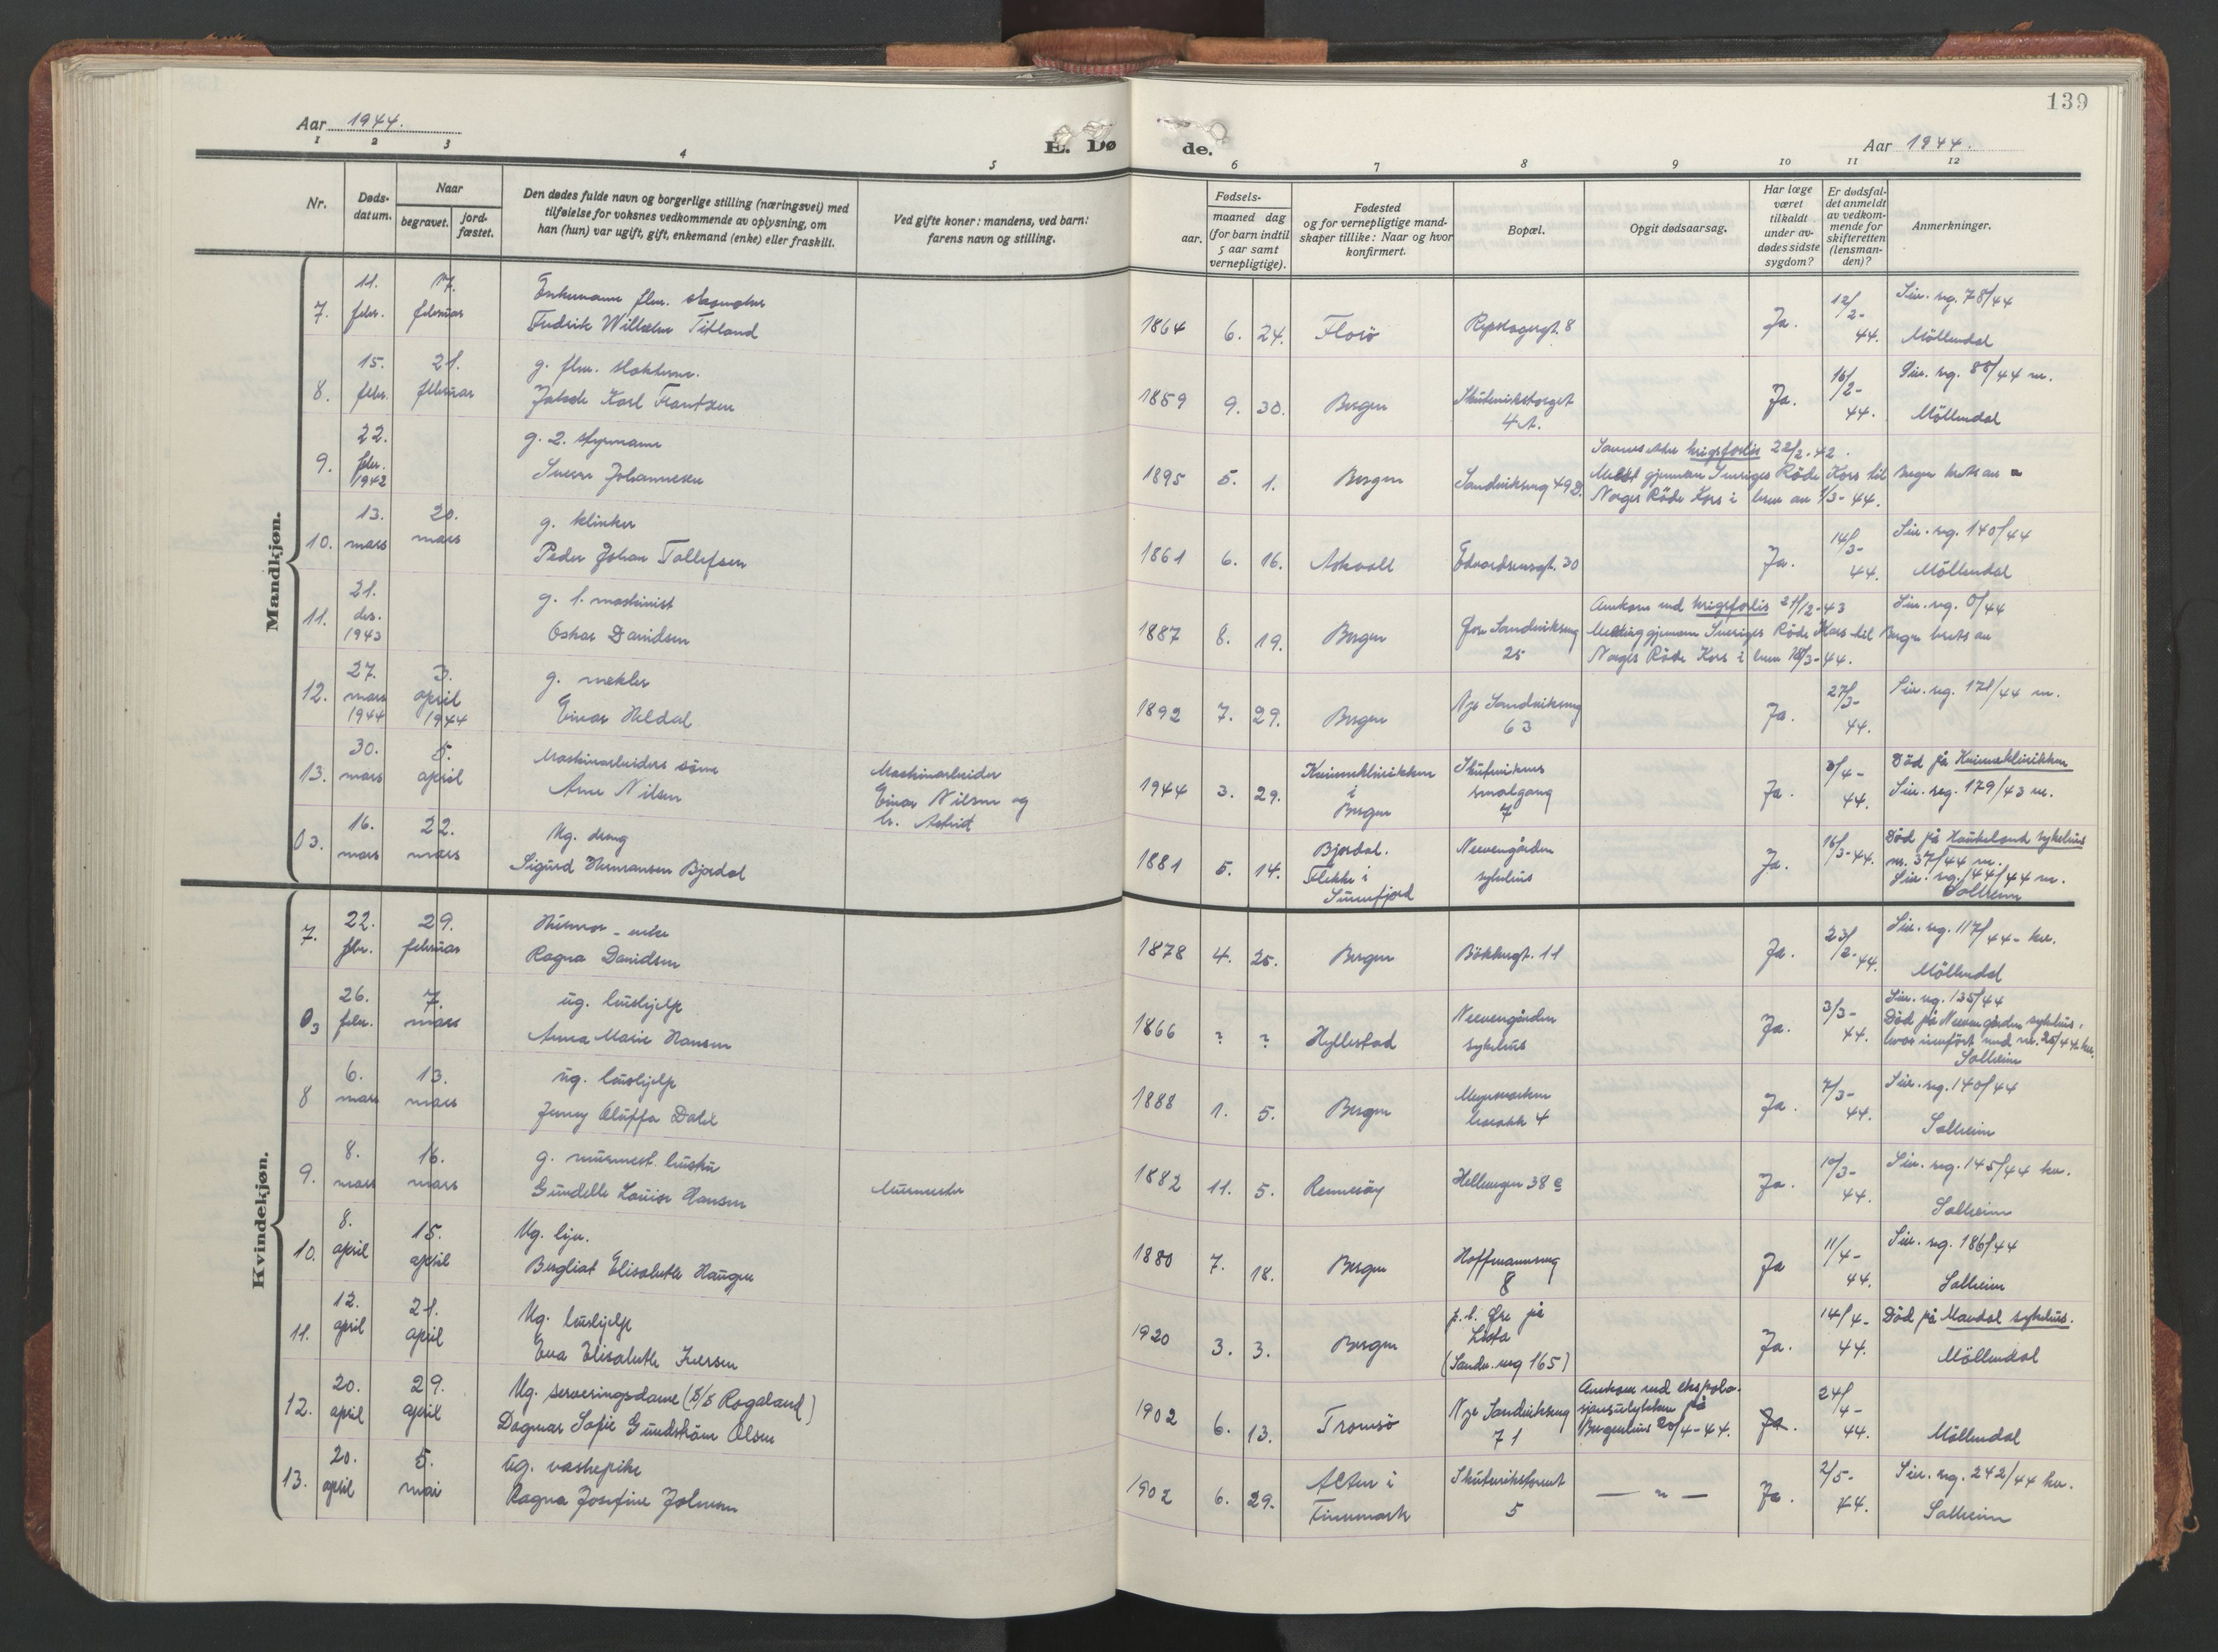 139
Aar 1944.
E. Døde.
Aar 1944.
1 2 3 4 5 6 7 8 9 10 11 12
Nr.
Døds-
datum.
Naar
begravet.
jord-
fæstet.
Den dødes fulde navn og borgerlige stilling (næringsvei) med
tilføielse for voksnes vedkommende av oplysning, om
han (hun) var ugift, gift, enkemand (enke) eller fraskilt.
Ved gifte koner: mandens, ved barn:
farens navn og stilling.
Fødsels-
aar.
maaned dag
(for barn indtil
5 aar samt
vernepligtige).
Fødested
og for vernepligtige mand-
skaper tillike: Naar og hvor
konfirmert.
Bopæl.
Opgit dødsaarsag.
Har læge
været
tilkaldt
under av-
dødes sidste
sygdom?
Er dødsfal-
det anmeldt
av vedkom-
mende for
skifteretten
(lensman-
den)?
Anmerkninger.
Mandkjøn.
7. 11. febr. 17. februar
Enkemann flm.
Fredrik Wilhelm Titland
1864 6. 24. Florö Ja. 12/2-44. Siv. reg. 78/44
Möllendal
8. 15. febr. 21. februar
g. flm.
Jakob Karl Frantzen
1859 9. 30. Bergen Skutevikstorget
4 A. Ja. 16/2-44. Siv. reg. 88/44 m.
Möllendal
9. 22. febr. 1942
g. 2. styrmann
Sverre Johannesen
1895 5. 1. Bergen Sandviksveg 49 B. krigsforlis 22/2-42.
Meldt gjennem Sveriges Röde Kors til
Norges Röde Kors i brev av /3-44.
10. 13. mars 20. mars
g. klinker
Peder Johan Tollefsen
1861 6. 16. Askvoll Edvardsensgt. 30 Ja. 14/3-44. Siv. reg. 140/44
Möllendal
11. 21. des. 1943
g. 1. maskinist
Oskar Davidsen
1887 8. 19. Bergen Sandviksveg
25 Omkom ved krigsforlis 21/12-43 Siv. reg. 0/44
Melding gjennem Sveriges Röde Kors til
Norges Röde Kors i brev 18/3-44.
12. 27. mars 1944 3. april 1944
g. mekler
Einar Heldal
1892 7. 29. Bergen Nye Sandviksveg
63 Ja. 27/3-44. Siv. reg. 171/44 m.
13. 30. mars 5. april
Maskinarbeiders sönn
Arne Nilsen
Maskinarbeider
Einar Nilsen og
h. Astrid
1944 3. 29. Kvinneklinikken
i
Bergen Skutevikens
smalgang
7 Ja. 3/4-44. Död på Kvinneklinikken
Siv. reg. 179/43 m.
03. 16. mars 22. mars
Ug. dreng
Sigurd Hermansen Bjordal
1881 5. 14. Bjordal.
Flekke i
Sunnfjord Neevengården
sykehus Ja. 16/3-44. Död på Haukeland sykehus
nr. 37/44 m.
Siv. reg. 144/44 m.
Solheim
Kvindekjøn.
7. 22. febr. 29. februar
Husmor - enke
Ragna Davidsen
1878 4. 25. Bergen Bökkergt. 11 Ja. 23/2-44. Siv. reg. 117/44- kv.
Möllendal
03 26. febr. 7. mars
ug. hushjelp
Anna Marie Hansen
1866 ? ? Hyllestad Neevengården
sykehus Ja. 3/3-44. Siv. reg. 135/44
Död på Neevengården sykehus,
hvor innfört med nr. 25/44 kv.
Solheim
8 6. mars 13. mars
ug. hushjelp
Jenny Oluffa Dahl
1888 1. 5. Bergen Meyermarken
barakk 4 Ja. 7/3-44. Siv. reg. 140/44
Solheim
9. 8. mars 16. mars
g. murmest. hustru
Gundelle Louise Hansen
Murmester
1882 11. 5. Rennesöy Helleveien 38 Ja. 10/3-44. Siv. reg. 145/44 kv.
Solheim
10. 8. april 15. april
Ug. hju.
Bergliot Elisabeth Haugen
1880 7. 18. Bergen Hoffmannsveg
8 Ja 11/4-44. Siv. reg. 186/44
Solheim
11. 12. april 21. april
Ug. hushjelp
Eva Elisabeth Iversen
1920 3. 3. Bergen p.t. Øre på
Lista
(Sandv. veg 165) Ja. 14/4-44. Död på Mandal sykehus.
Möllendal
12. 20. april 29. april
Ug. serveringsdame (S/S Rogaland)
Dagmar Sofie Gundström Olsen
1902 6. 13. Tromsö Nye Sandviksveg
71 Omkom ved eksplo-
sjonsulykken på
Bergenhus 20/4-44. Ja. 24/4-44.
Möllendal
13. 20. april 5. mai
Ug. vaskepike
Ragna Josefine Johnsen
1902 6. 29. Alten i
Finnmark Skuteviksveien
5 — " — Ja. 2/5-44. Siv. reg. 242/44 kv.
Solheim